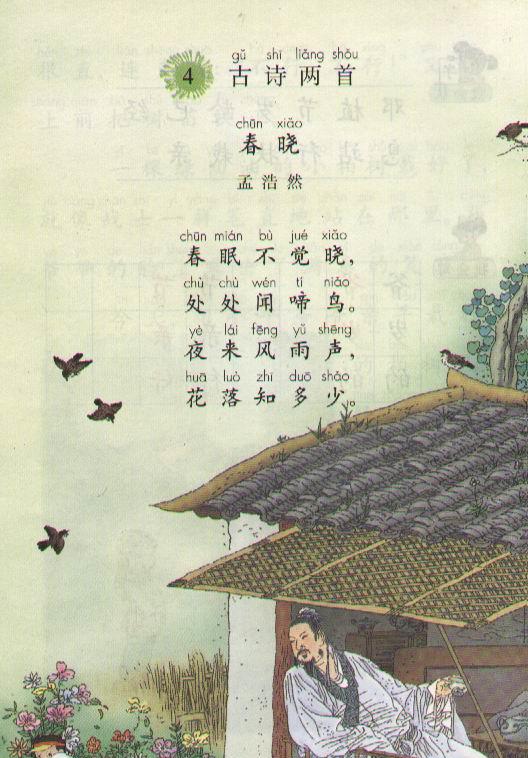 gǔ shī liǎng shǒu
4 古诗两首
chūn xiǎo
春晓
孟浩然
chūn mián bù jué xiǎo
春眠不觉晓，
chù chù wén tí niǎo
处处闻啼鸟。
yè lái fēng yǔ shēng
夜来风雨声，
huā luò zhī duō shǎo
花落知多少。